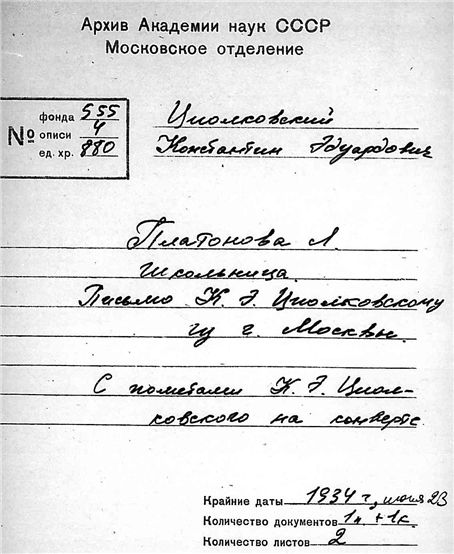 Архив Академии наук СССР
Московское отделение
№
фонда 555
описи 4
ед. хр. 880
Циолковский
Константин Эдуардович
Платонова Л.
школьница.
Письмо К. Э. Циолковскому
из г. Москвы.
С пометами К. Э. Циол-
ковского на конверте
Крайние даты 1934 г., 23
Количество документов 1п +1к.
Количество листов 2